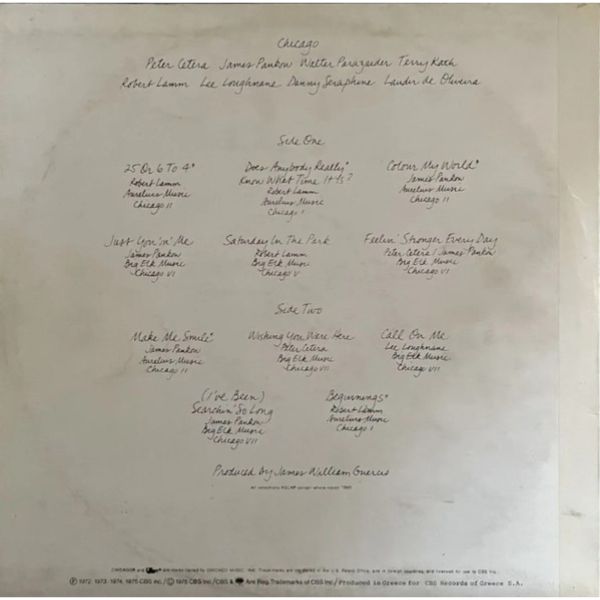 Chicago
Peter Cetera James Pankow Walter Parazaider Terry Kath
Robert Lamm Lee Loughnane Danny Seraphine Laudir de Oliveira
Side One
25 Or 6 To 4*
Robert Lamm
Aurelius Music
Chicago II
Does Anybody Really*
Know What Time It Is?
Robert Lamm
Aurelius Music
Chicago I
Colour My World*
James Pankow
Aurelius Music
Chicago II
Just You 'n' Me
James Pankow
Big Elk Music
Chicago VI
Saturday In The Park
Robert Lamm
Big Elk Music
Chicago V
Feelin' Stronger Every Day
Peter Cetera / James Pankow
Big Elk Music
Chicago VI
Side Two
Make Me Smile*
James Pankow
Aurelius Music
Chicago II
Wishing You Were Here
Peter Cetera
Big Elk Music
Chicago VII
Call On Me
Lee Loughnane
Big Elk Music
Chicago VII
(I've Been)
Searchin' So Long
James Pankow
Big Elk Music
Chicago VII
Beginnings*
Robert Lamm
Aurelius Music
Chicago I
Produced by James William Guercio
All selections ASCAP except where noted *BMI
Ⓟ 1972, 1973, 1974, 1975 CBS Inc./© 1975 CBS Inc./CBS & Are Reg. Trademarks of CBS Inc./Produced in Greece for CBS Records of Greece S.A.